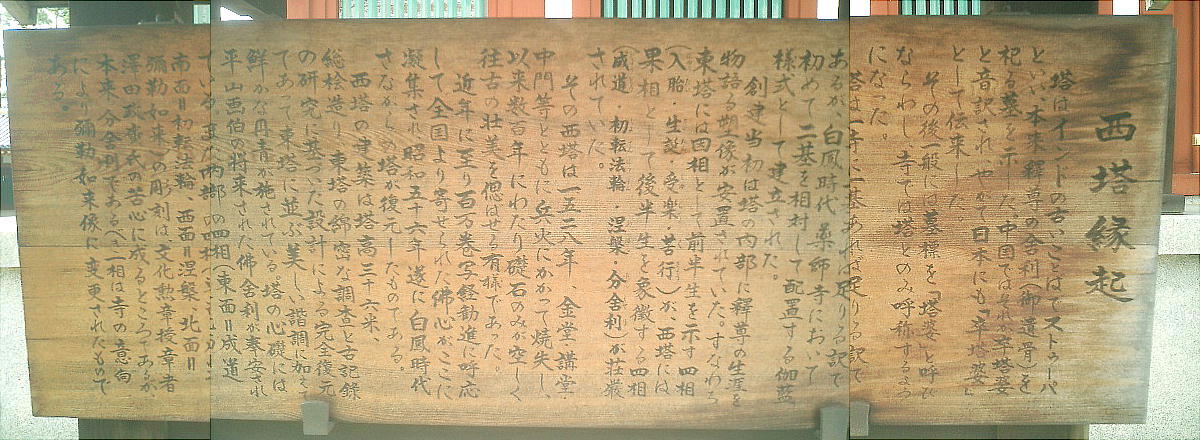 西塔縁起
塔はインドの古いことばでストゥーパ
といい本来釋尊の舍利(御遺骨)を
祀る墓を示した、中国ではそれが卒塔婆
と音訳され、やがて日本にも「卒塔婆」
として伝来した。
その後一般には墓標を「塔婆」と呼び
ならわし、寺では塔とのみ呼称するよう
になった。
塔は一寺に一基あれば足りる訳で
あるが、白鳳時代、薬師寺において
初めて二基を相対して配置する伽藍
様式として建立された。
創建当初は塔の内部に釋尊の生涯を
物語る塑像が安置されていた。すなわち
東塔には因相として前半生を示す四相
(入胎・生誕・受楽・苦行)が、西塔には
果相として後半生を象徴する四相
(成道・初転法輪・涅槃・分舍利)が荘厳
されていた。
その西塔は一五二八年、金堂、講堂、
中門等とともに兵火にかかって焼失し、
以来数百年にわたり礎石のみが空しく
往古の壮美を偲ばせる有様であった。
近年に至り百万巻写経勧進に呼応
して全国より寄せられた佛心がここに
凝集され、昭和五十六年遂に白鳳時代
さながらの塔が復元したものである。
西塔の建築は塔高三十六米、
総桧造り、東塔の綿密な調本と古記録
の研究に基づいた設計による完全復元
であって東塔に並ぶ美しい諧調に加えて
鮮かな丹青が施されている。塔の心礎には
平山画伯の将来された佛舍利が奉安され
ている。また内部の四相
(東面=成道
南面=初転法輪、西面=涅槃、北面=
彌勒如来)の彫刻は、文化勲章授章者
澤田政廣氏の苦心に成るところであるが
本来、分舍利であるべき一相は寺の意向
により彌勒如来像に変更されたもので
ある。